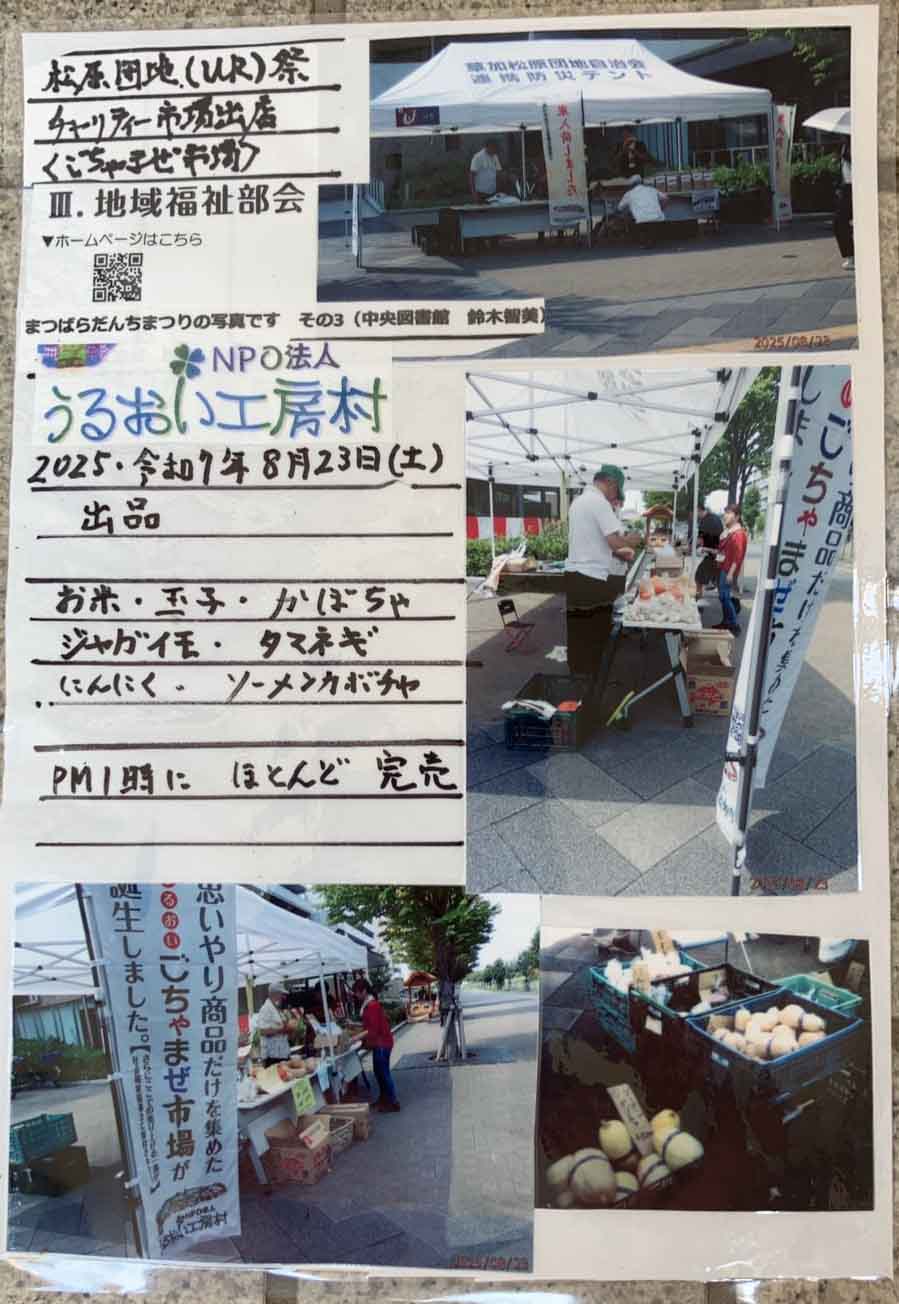 松原団地(UR)祭
チャーリティー市場出店
〈ごちゃまぜ市場〉
Ⅲ.地域福祉部会
▼ホームページはこちら
まつばらだんちまつりの写真です その3（中央図書館 鈴木智美）
草加松原団地自治会
連携防災テント
2025/08/23
NPO法人
うるおい工房村
2025・令和7年8月23日(土)
出品
お米・玉子・かぼちゃ
ジャガイモ・タマネギ
にんにく・ソーメンカボチャ
PM1時に ほとんど 完売
商品だけを集めた
ごちゃまぜ
しま
2025/08/23
思いやり商品だけを集めた
うるおいごちゃまぜ市場が
誕生しました。
うるおい工房村
2025/08/23